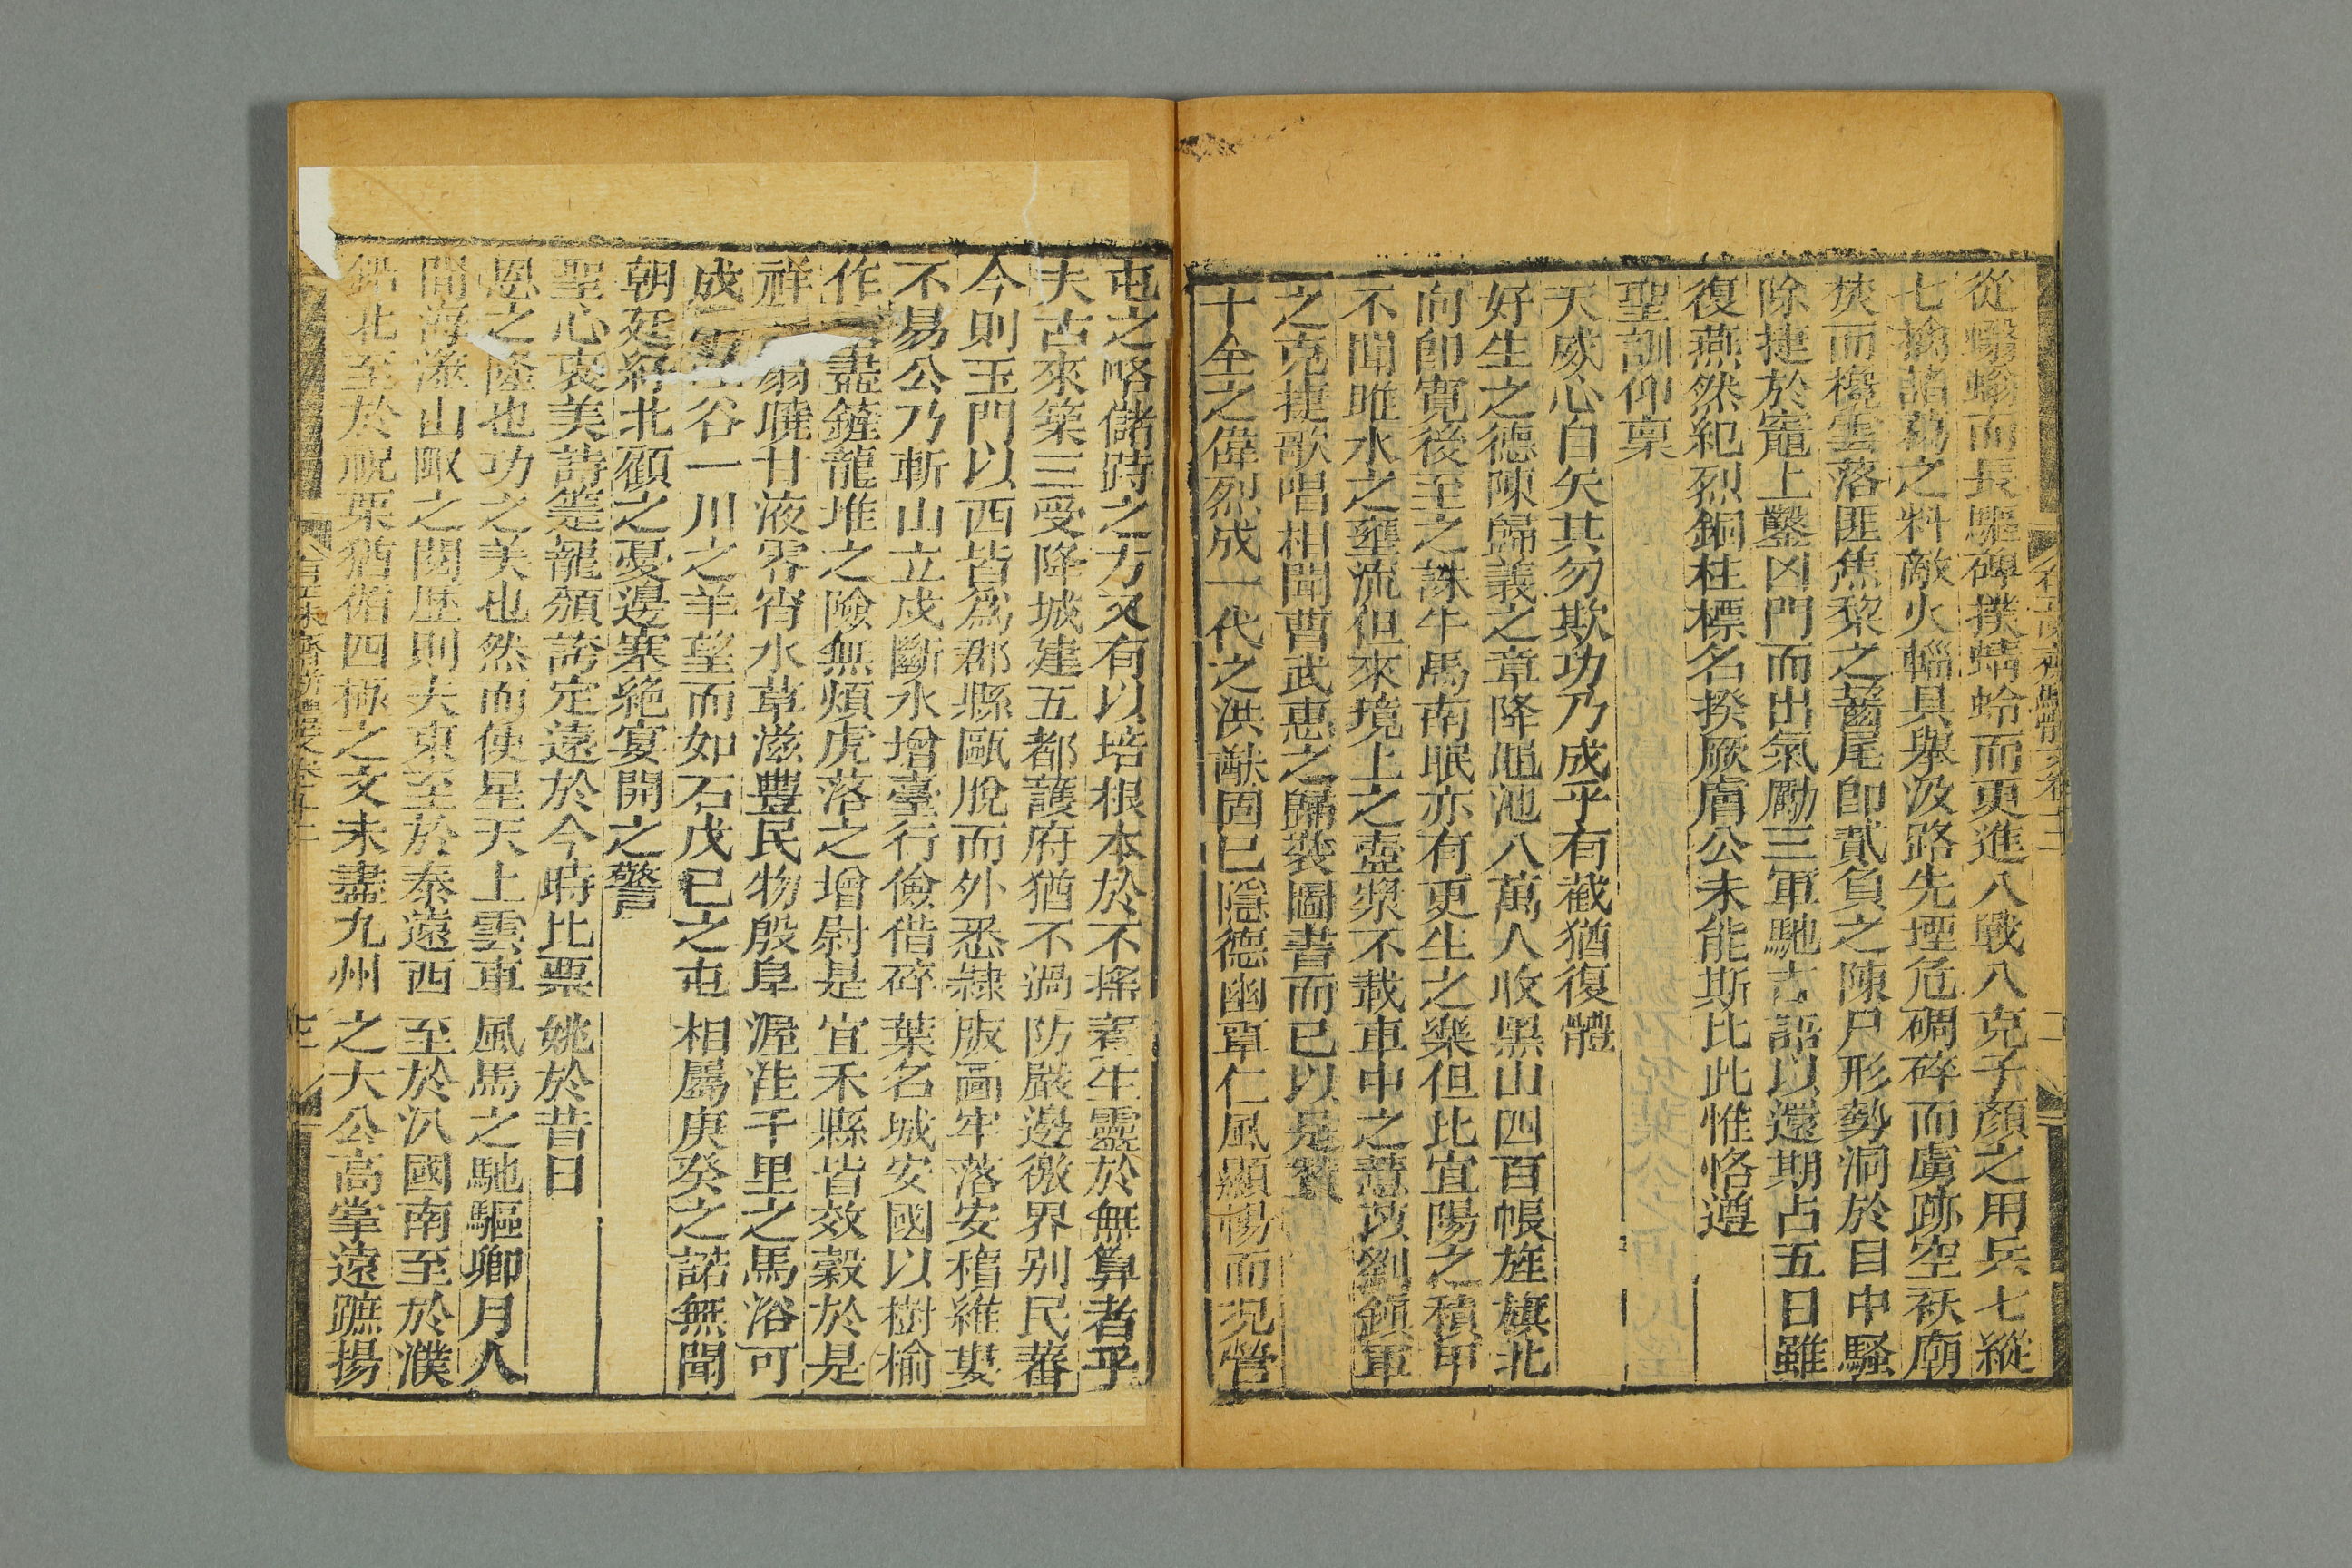 從蠮螉而長驅碑撲蜻蛉而更進八戰八克子顏之用兵七縱
七擒諸葛之料敵火輜具舉汲路先堙危碉碎而虜跡空祆廟
焚而欃雲落匪焦黎之齧尾卽貳負之陳尸形勢洞於目中騷
除捷於竈上鑿凶門而出氣勵三軍馳吉語以還期占五日雖
復燕然紀烈銅柱標名揆厥膚公未能斯比此惟恪遵
聖訓仰稟
天威心自矢其勿欺功乃成乎有截猶復體
好生之德陳歸義之章降黽池八萬人收黑山四百帳旌旗北
向卽寬後至之誅牛馬南眠亦有更生之樂但比宜陽之積甲
不聞睢水之壅流但來境上之壺漿不載車中之薏苡劉鎮軍
之克捷歌唱相聞曹武惠之歸裝圖書而已以是贊
十全之偉烈成一代之洪猷固已隱德幽覃仁風顯暢而況營
屯之略儲跱之方又有以培根本於不搖奢生靈於無算者乎
夫古來築三受降城建五都護府猶不過防嚴邊徼界別民蕃
今則玉門以西皆爲郡縣甌脫而外悉隸版圖牢落安稽維婁
不易公乃斬山立戍斷水增臺行儉借碎葉名城安國以樹榆
作 盡鏟龍堆之險無煩虎落之增尉是宜禾縣皆效穀於是
祥 扇暁甘液零宵水草滋豐民物殷阜渥洼千里之馬浴可
成 谷一川之羊望而如石戊已之屯相屬庚癸之諾無聞
朝廷紓北顧之憂邊塞絕宴開之警
聖心衷美詩筵寵頒誇定遠於今時比票姚於昔日
恩之隆也功之美也然而使星天上雲車風馬之馳驅卿月人
間海澨山陬之閱歷則大東至於泰遠西至於汃國南至於濮
鉛北至於祝栗猶循四極之文未盡九州之大公高掌遠蹠揚